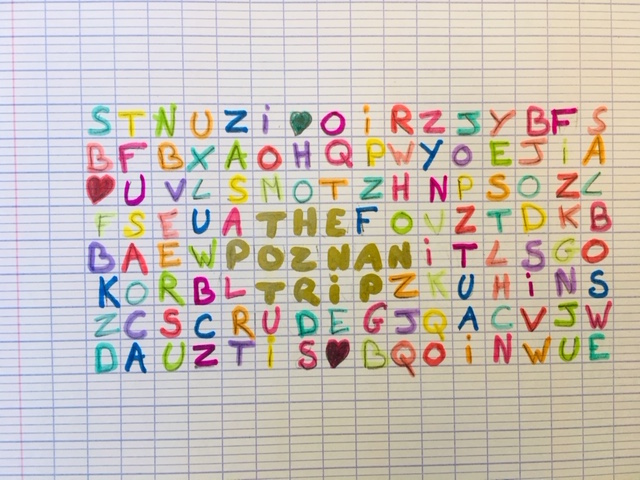 S T N U Z i ♥ O i R Z J Y B F S
B F B X A O H Q P W Y O E J i A
♥ U V L S M O T Z H N P S O Z L
F S E U A T H E F O V Z T D K B
B A E W P O Z N A N i T L S G O
K O R B L T R i P Z K U H i N S
Z C S C R U D E G J Q A C V J W
D A U Z T i S ♥ B Q O i N W U E